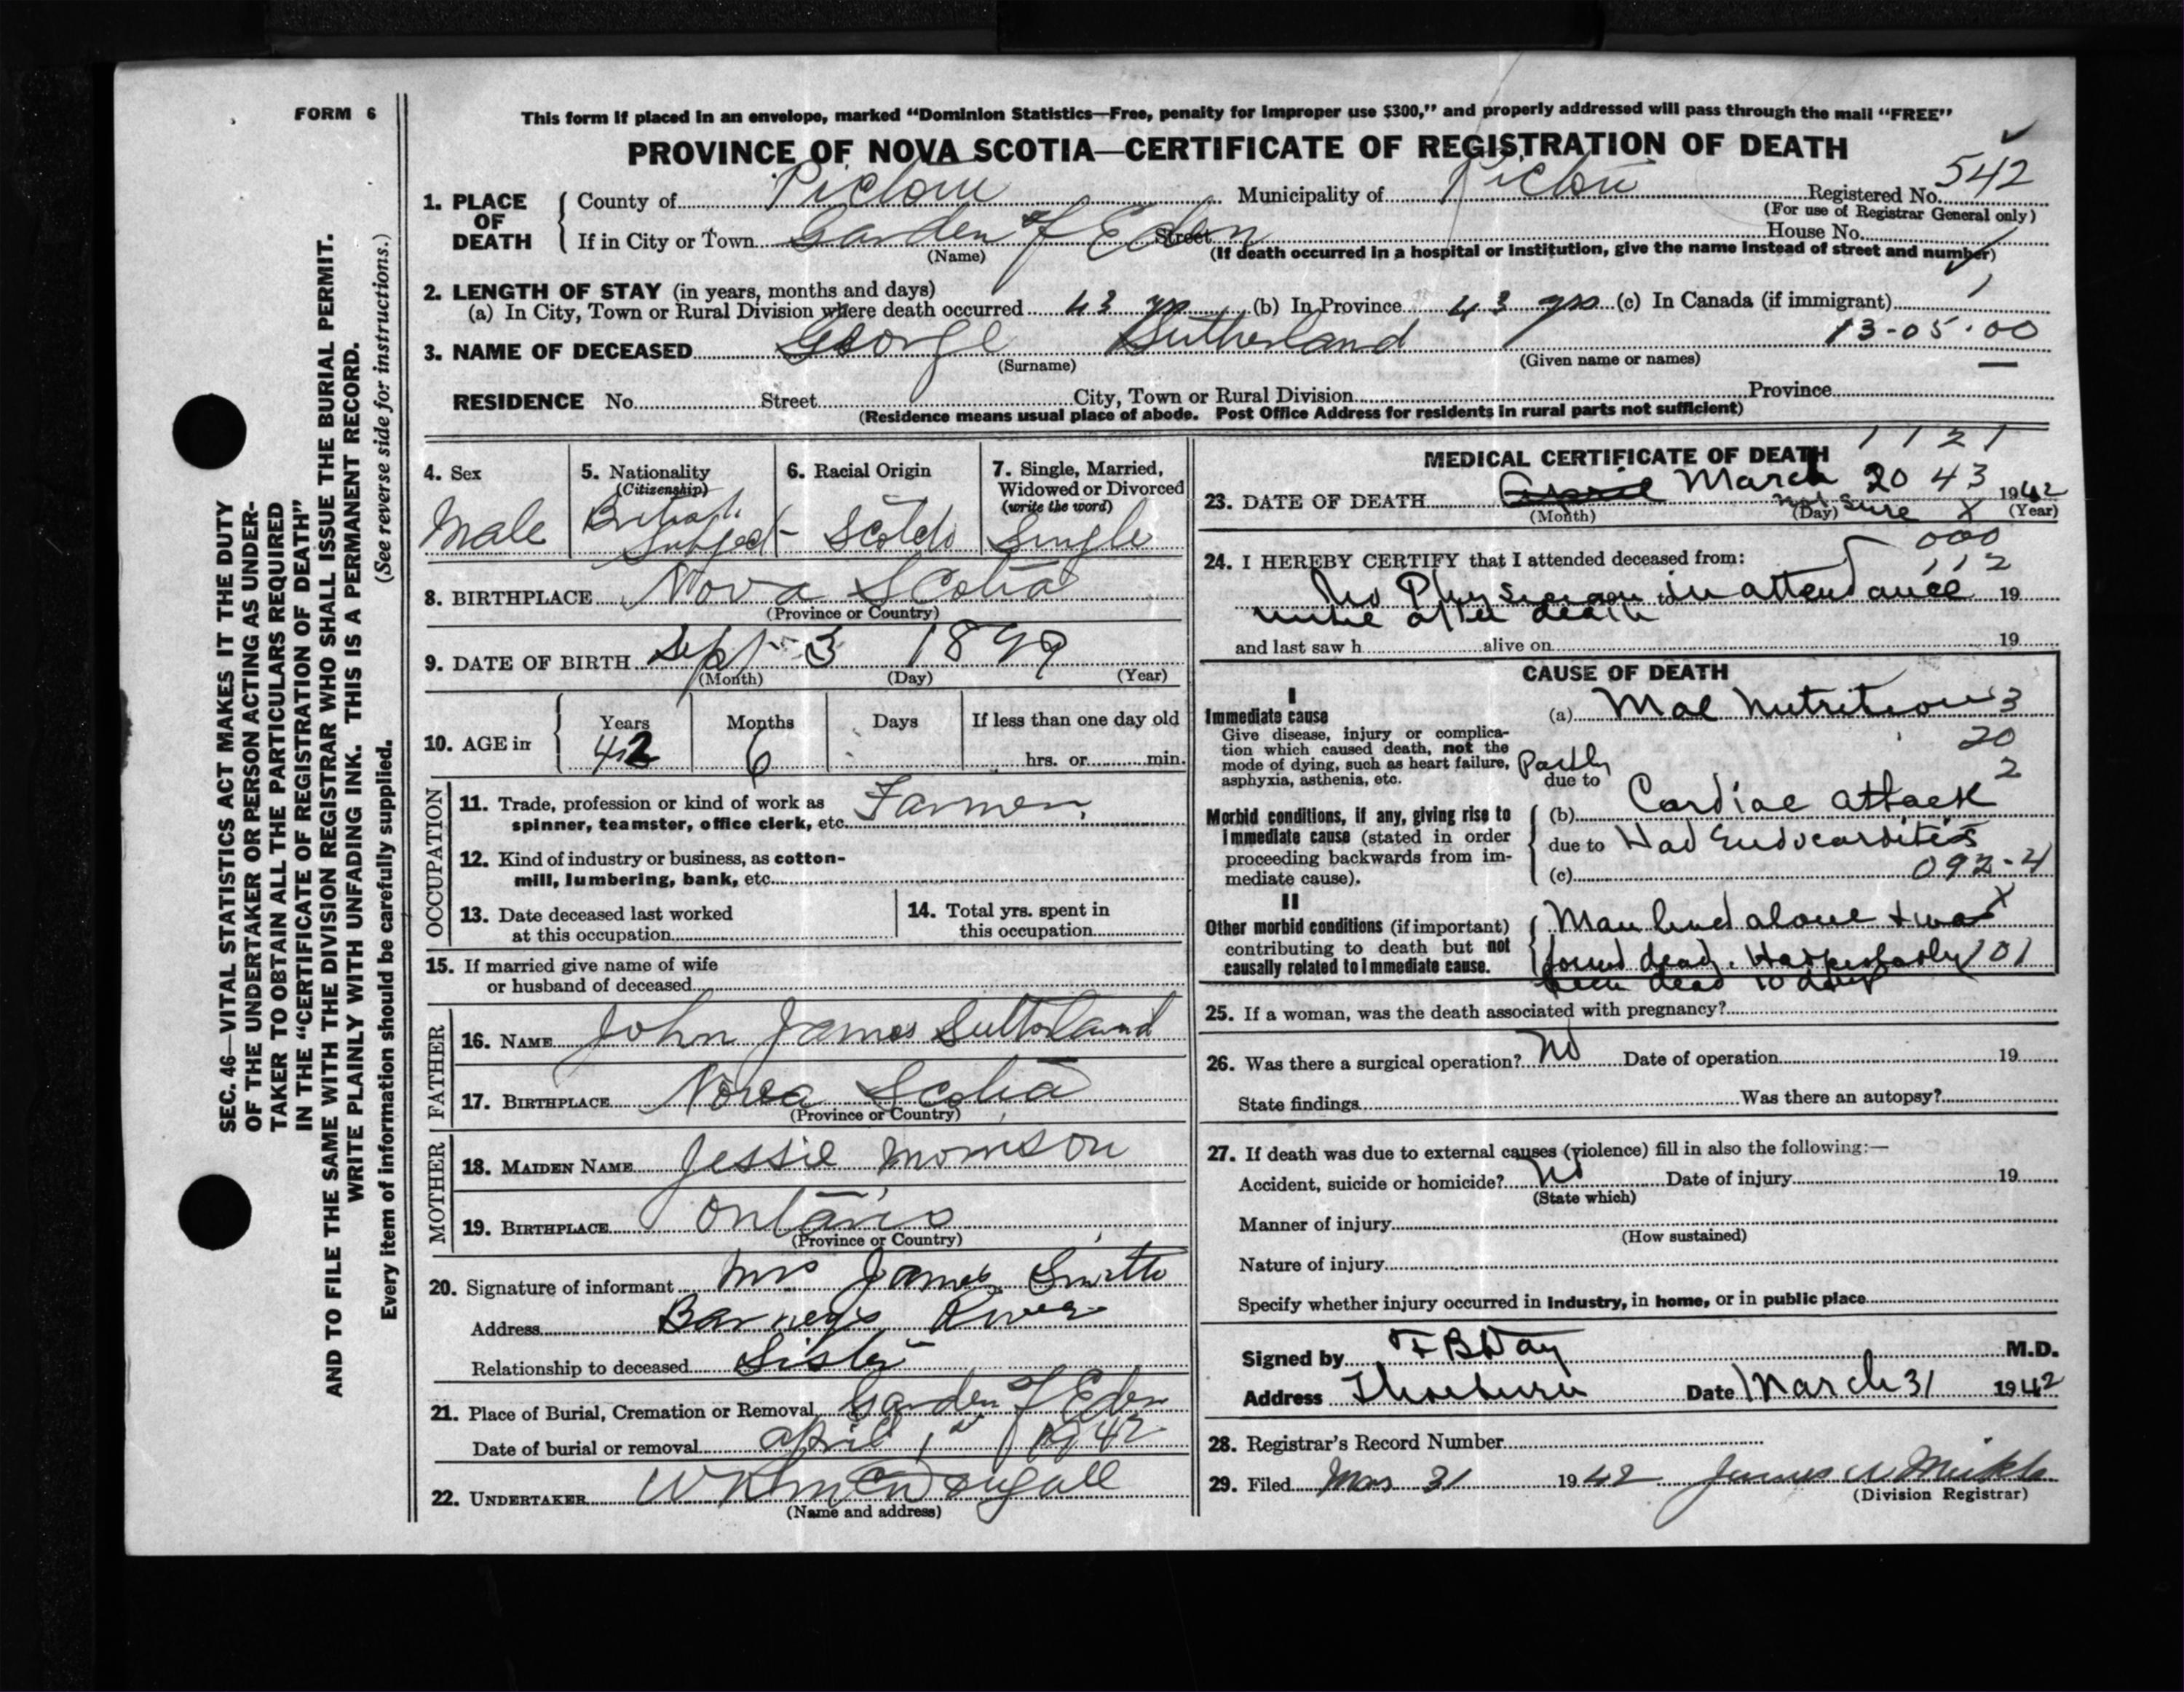 FORM 6
This form if placed in an envelope, marked “Dominion Statistics—Free, penalty for improper use $300,” and properly addressed will pass through the mail “FREE”
PROVINCE OF NOVA SCOTIA—CERTIFICATE OF REGISTRATION OF DEATH
1. PLACE OF DEATH
County of Pictou Municipality of Pictou Registered No. 542
(For use of Registrar General only)
If in City or Town Garden of Eden Street House No.
(Name) (If death occurred in a hospital or institution, give the name instead of street and number)
2. LENGTH OF STAY (in years, months and days)
(a) In City, Town or Rural Division where death occurred 43 yrs (b) In Province 43 yrs (c) In Canada (if immigrant)
13-05-00
3. NAME OF DECEASED George Sutherland
(Surname) (Given name or names)
RESIDENCE No. Street City, Town or Rural Division Province
(Residence means usual place of abode. Post Office Address for residents in rural parts not sufficient)
4. Sex
Male
5. Nationality
(Citizenship)
British
Subject
6. Racial Origin
Scotch
7. Single, Married,
Widowed or Divorced
(write the word)
Single
8. BIRTHPLACE Nova Scotia
(Province or Country)
9. DATE OF BIRTH Sept 3 1899
(Month) (Day) (Year)
10. AGE in
Years Months Days If less than one day old
42 6 hrs. or min.
OCCUPATION
11. Trade, profession or kind of work as
spinner, teamster, office clerk, etc. Farmer
12. Kind of industry or business, as cotton-
mill, lumbering, bank, etc.
13. Date deceased last worked
at this occupation
14. Total yrs. spent in
this occupation
15. If married give name of wife
or husband of deceased
FATHER
16. NAME John James Sutherland
17. BIRTHPLACE Nova Scotia
(Province or Country)
MOTHER
18. MAIDEN NAME Jessie Morrison
19. BIRTHPLACE Ontario
(Province or Country)
20. Signature of informant Mrs James Smith
Address Barneys River
Relationship to deceased Sister
21. Place of Burial, Cremation or Removal Garden of Eden
Date of burial or removal April 1st 1942
22. UNDERTAKER McDougall
(Name and address)
1121
MEDICAL CERTIFICATE OF DEATH
23. DATE OF DEATH April March 20 43 1942
not sure X
(Month) (Day) (Year)
24. I HEREBY CERTIFY that I attended deceased from:
000
112
No Physician to in attendance 19
until after death
and last saw h alive on 19
CAUSE OF DEATH
I
Immediate cause
Give disease, injury or complica-
tion which caused death, not the
mode of dying, such as heart failure,
asphyxia, asthenia, etc.
(a) Mal Nutrition 3
20
2
Partly
due to
Morbid conditions, if any, giving rise to
immediate cause (stated in order
proceeding backwards from im-
mediate cause).
(b) Cardiac attack
due to Had Endocarditis
(c) 092-4
II
Other morbid conditions (if important)
contributing to death but not
causally related to immediate cause.
Man lived alone & was X
found dead. Had probably 101
been dead 10 days
25. If a woman, was the death associated with pregnancy?
26. Was there a surgical operation? No Date of operation 19
State findings Was there an autopsy?
27. If death was due to external causes (violence) fill in also the following:—
Accident, suicide or homicide? No Date of injury 19
(State which)
Manner of injury
(How sustained)
Nature of injury
Specify whether injury occurred in industry, in home, or in public place
Signed by F B Day M.D.
Address Thorburn Date March 31 1942
28. Registrar’s Record Number
29. Filed Mar 31 1942 James
(Division Registrar)
SEC. 46—VITAL STATISTICS ACT MAKES IT THE DUTY
OF THE UNDERTAKER OR PERSON ACTING AS UNDER-
TAKER TO OBTAIN ALL THE PARTICULARS REQUIRED
IN THE “CERTIFICATE OF REGISTRATION OF DEATH”
AND TO FILE THE SAME WITH THE DIVISION REGISTRAR WHO SHALL ISSUE THE BURIAL PERMIT.
WRITE PLAINLY WITH UNFADING INK. THIS IS A PERMANENT RECORD.
Every item of information should be carefully supplied. (See reverse side for instructions.)